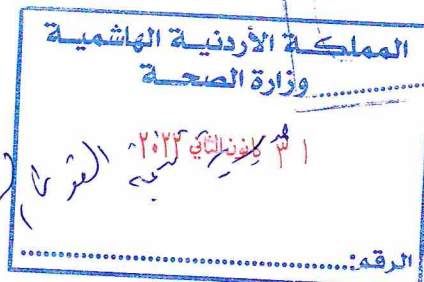 المملكة الأردنية الهاشمية
وزارة الصحة
٣١ كانون الثاني ٢٠٢٢
الرقم: